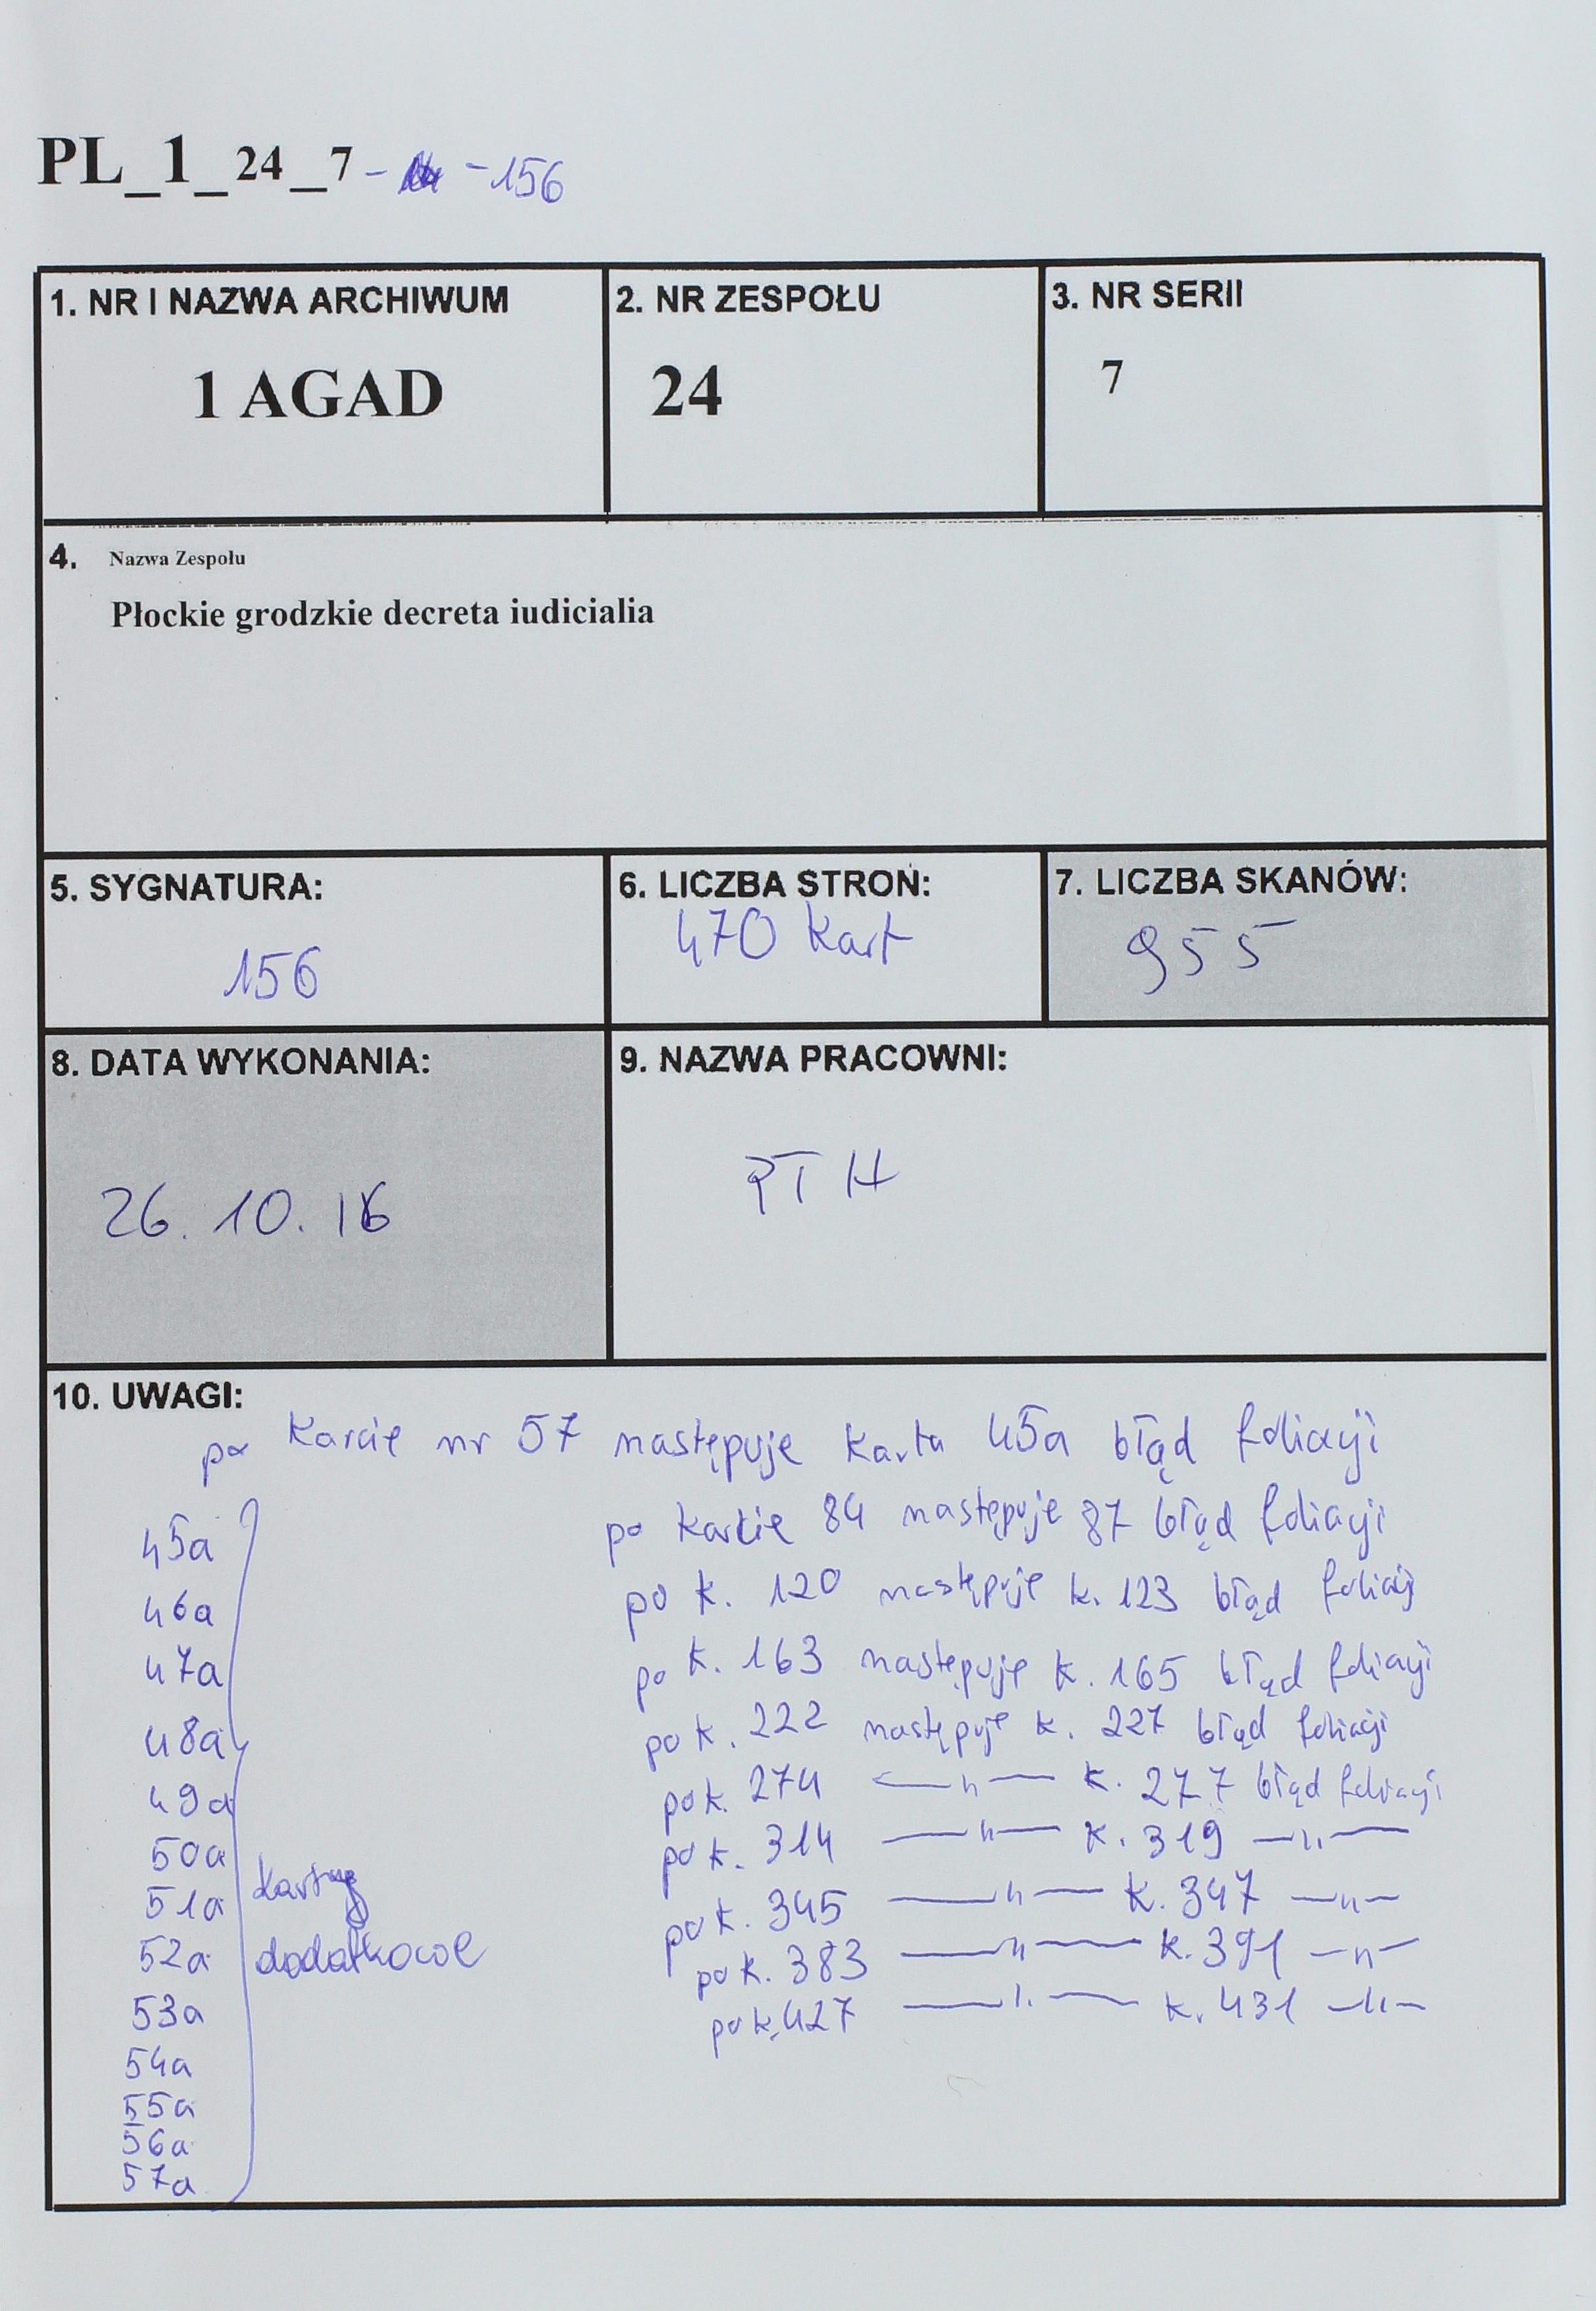 PL_1_24_7 - -156
1. NR I NAZWA ARCHIWUM
1 AGAD
2. NR ZESPOŁU
24
3. NR SERII
7
4. Nazwa Zespołu
Płockie grodzkie decreta iudicialia
5. SYGNATURA:
156
6. LICZBA STRON:
470 kart
7. LICZBA SKANÓW:
955
8. DATA WYKONANIA:
26. 10. 16
9. NAZWA PRACOWNI:
PTH
10. UWAGI:
po karcie nr 57 następuje karta 45a błąd foliacji
45a
46a
47a
48a
49a
50a
51a
52a
53a
54a
55a
56a
57a
karty
dodatkowe
po karcie 84 następuje 87 błąd foliacji
po k. 120 następuje k. 123 błąd foliacji
po k. 163 następuje k. 165 błąd foliacji
po k. 222 następuje k. 227 błąd foliacji
po k. 274 —„— k. 277 błąd foliacji
po k. 314 —„— k. 319 —„—
po k. 345 —„— k. 347 —„—
po k. 383 —„— k. 391 —„—
po k. 427 —„— k. 431 —„—